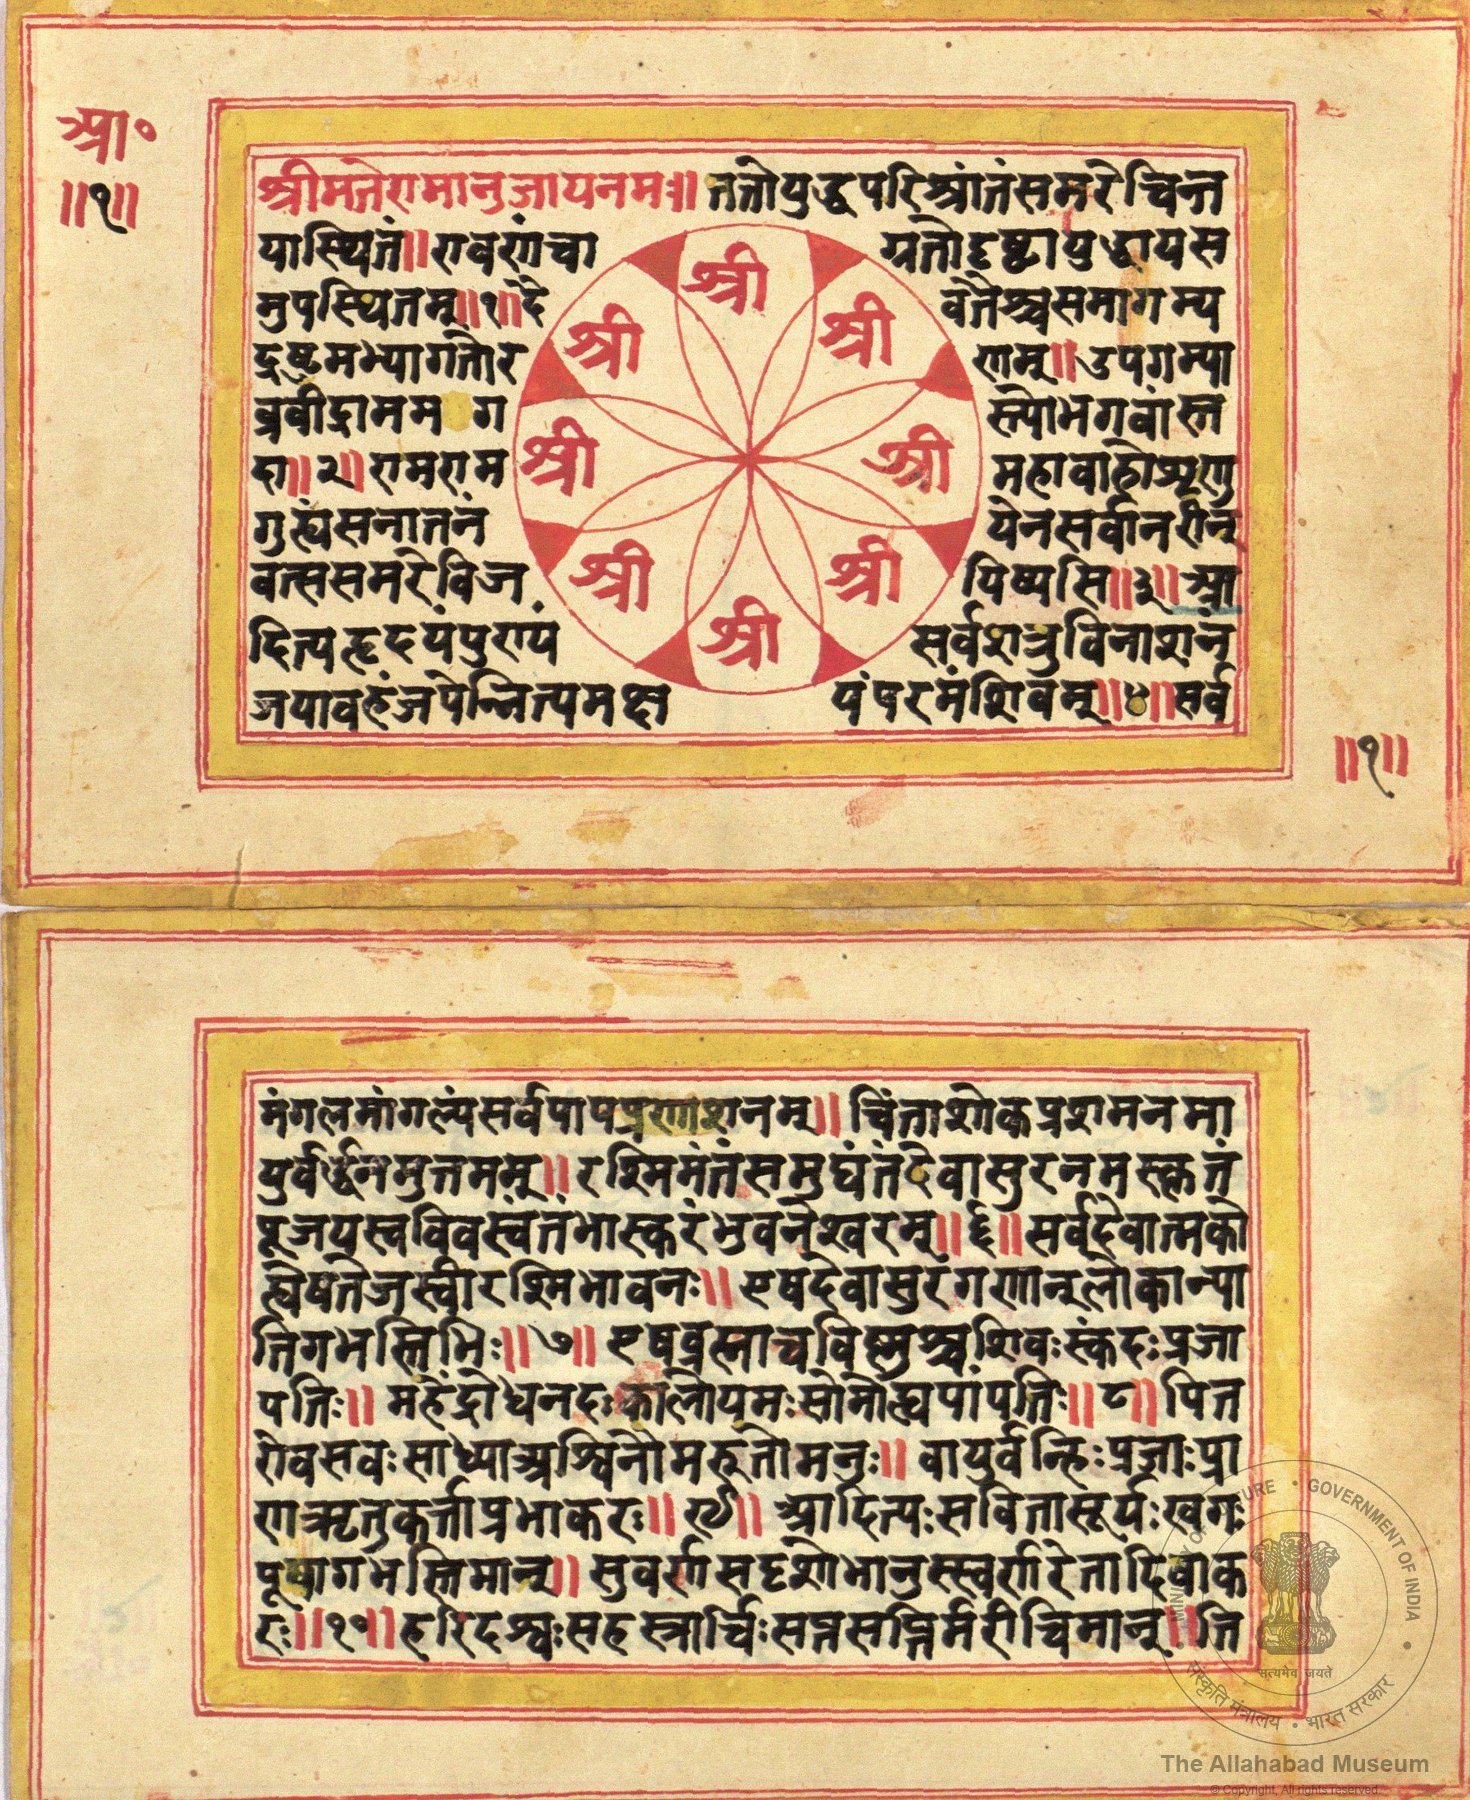 आ॰
॥१॥
श्रीमतेरामानुजायनमः॥ ततोयुद्धपरिश्रांतंसमरेचिन्त
यास्थितं॥रावणंचा श्री ग्रतोदृष्ट्वायुद्धायस
मुपस्थितम्॥१॥दै श्री श्री वतैश्चसमागम्य
द्रष्टुमभ्यागतोर णम्॥उपगम्या
ब्रवीद्रामम ग स्त्योभगवांस्त
दा॥२॥रामराम श्री श्री महाबाहोशृणु
गुह्यंसनातनं येनसर्वानरीन्
वत्ससमरेविज श्री श्री यिष्यसि॥३॥आ
दित्यहृदयंपुण्यं श्री सर्वशत्रुविनाशनं
जयावहंजपेन्नित्यमक्ष यंपरमंशिवम्॥४॥सर्व
॥१॥
मंगलमांगल्यंसर्वपापप्रणाशनम्॥ चिंताशोकप्रशमनमा
युर्वर्द्धनमुत्तमम्॥ रश्मिमंतंसमुद्यंतंदेवासुरनमस्कृतं
पूजयस्वविवस्वंतंभास्करंभुवनेश्वरम्॥६॥सर्वदेवात्मको
ह्येषतेजस्वीरश्मिभावनः॥एषदेवासुरंगणान्लोकान्पा
तिगभस्तिभिः॥७॥ एषब्रह्माचविष्णुश्चशिवःस्कंदःप्रजा
पतिः॥ महेंद्रोधनदःकालोयमःसोमोह्यपांपतिः॥८॥पित
रोवसवःसाध्याअश्विनौमरुतोमनुः॥ वायुर्वन्हिःप्रजाःप्रा
णऋतुकर्त्ताप्रभाकरः॥९॥ आदित्यःसवितासूर्यःखगः
पूषागभस्तिमान्॥सुवर्णसदृशोभानुस्स्वर्णरेतादिवाक
रः॥१०॥हरिदश्वःसहस्त्रार्चिःसप्तसप्तिर्मरीचिमान्॥ति
MINISTRY OF CULTURE • GOVERNMENT OF INDIA
सत्यमेव जयते
संस्कृति मंत्रालय • भारत सरकार
The Allahabad Museum
© Copyright, All rights reserved.